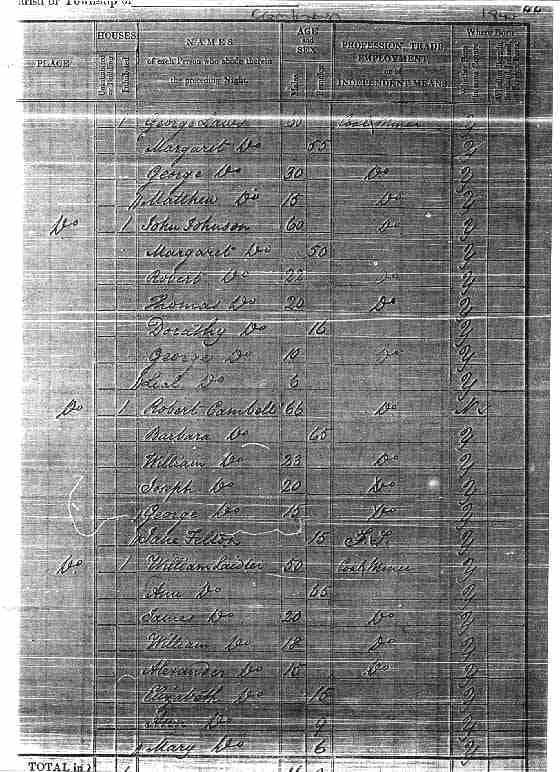 Parish or Township of
44
HOUSES
NAMES
AGE and SEX
PROFESSION, TRADE, EMPLOYMENT, or of INDEPENDENT MEANS.
Where Born
PLACE
of each Person who abode therein the preceding Night.
Males
Females
1 George Laws 50 Coal Miner Y
Margaret Do 55 Y
George Do 30 Do Y
Matthew Do 15 Do Y
Do 1 John Johnson 60 Do Y
Margaret Do 50 Y
Robert Do 22 Do Y
Thomas Do 20 Do Y
Dorathy Do 16 Y
George Do 10 Do Y
Do 6 Y
Do 1 Robert Cambell 66 Do
Barbara Do 65 Y
William Do 23 Do Y
Joseph Do 20 Do Y
George Do 15 Do Y
Jane Felton 15 F. S. Y
Do 1 William Laidler 50 Coal Miner Y
Ann Do 55 Y
James Do 20 Do Y
William Do 18 Do Y
Alexander Do 15 Do Y
Elizabeth Do 15 Y
Ann Do 9 Y
Mary Do 6 Y
TOTAL in